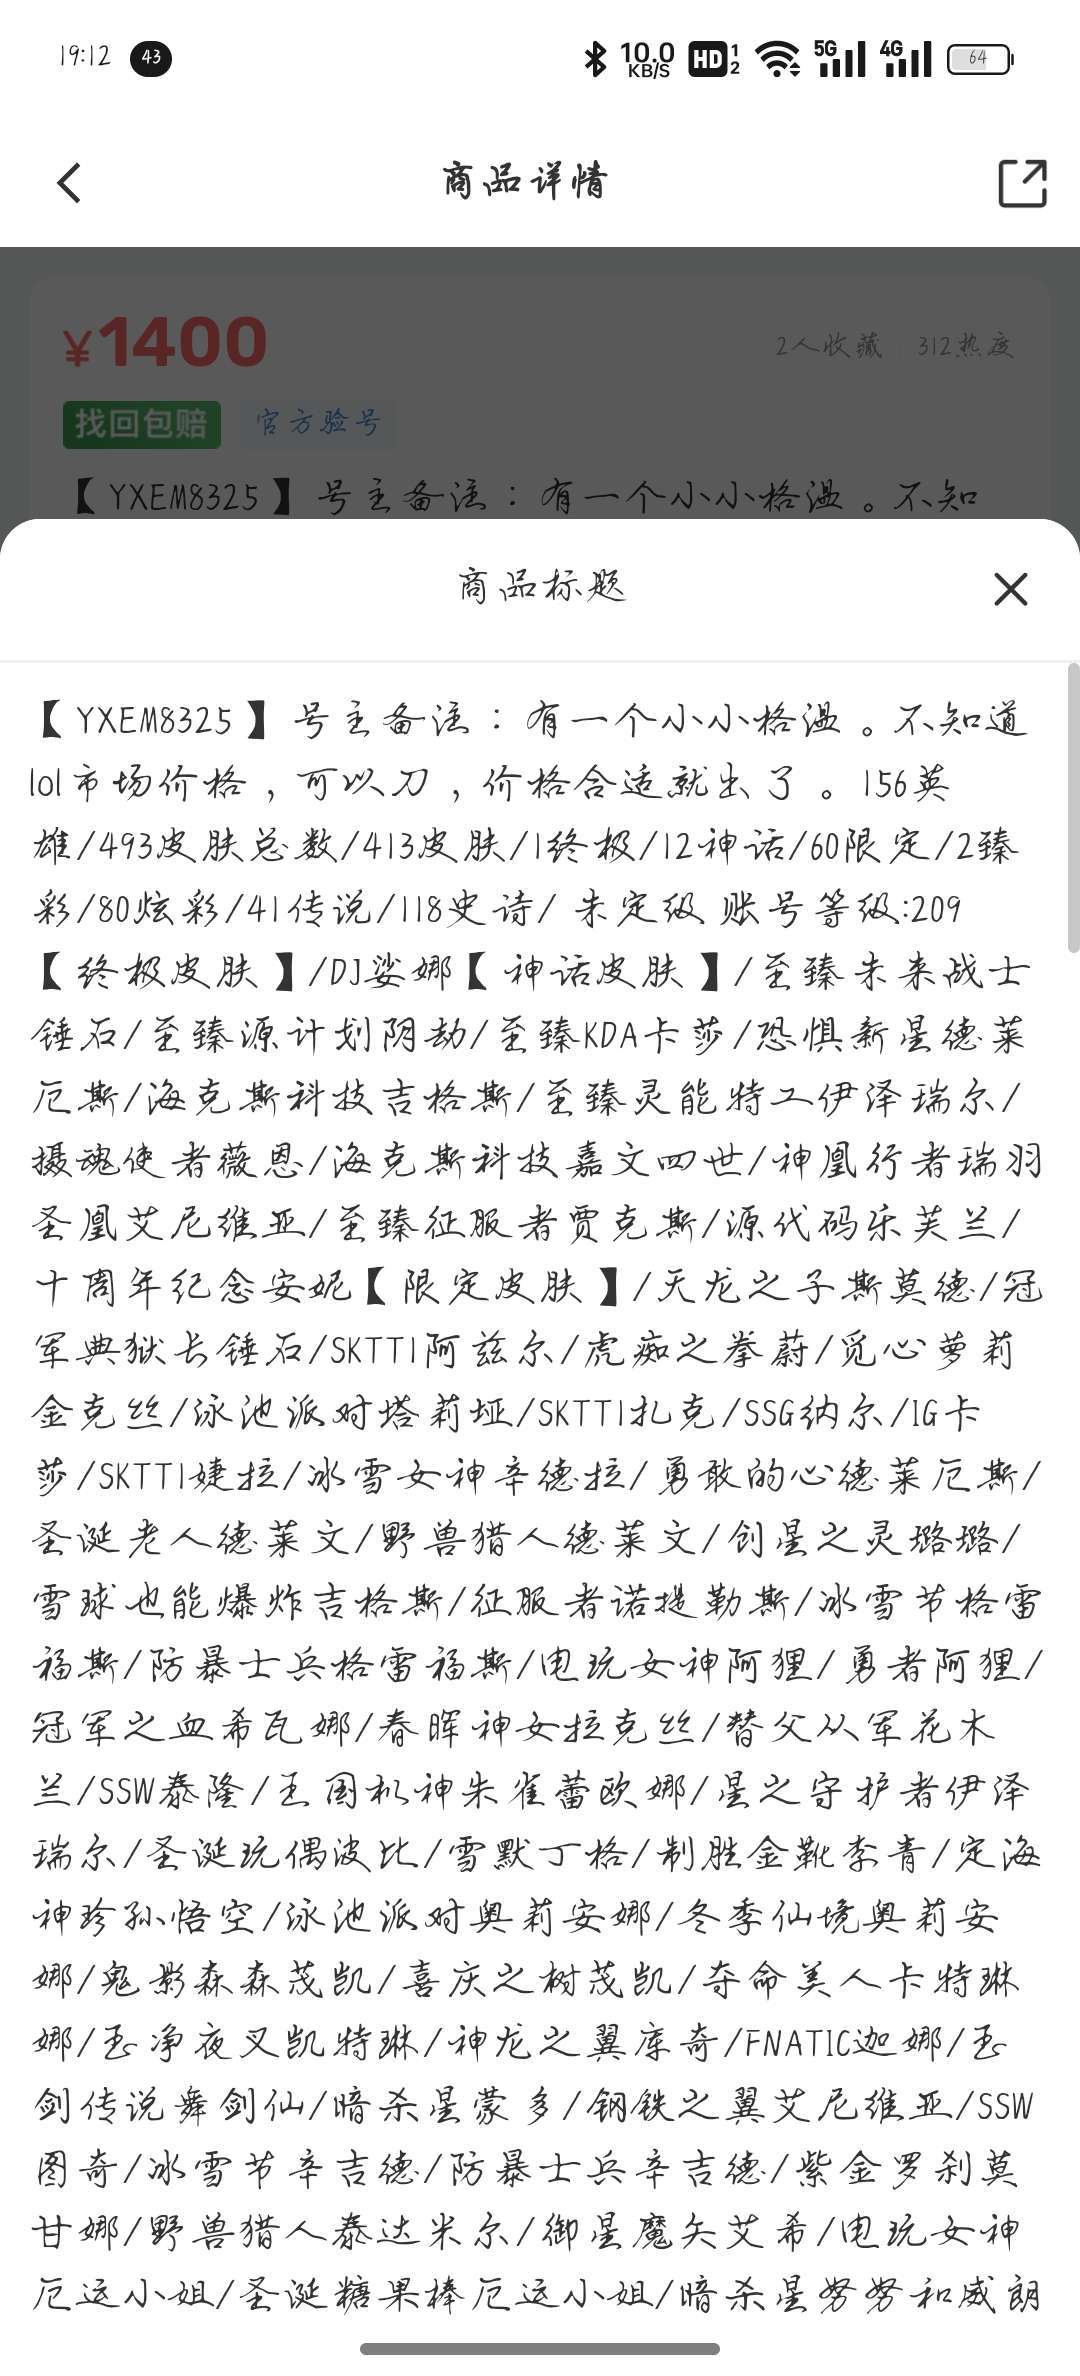 19:12 43 10.0 KB/S HD 1 2 5G 4G 64
商品详情
¥1400 2人收藏 312热度
找回包赔 官方验号
【YXEM8325】号主备注：有一个小小格温。不知
商品标题
【YXEM8325】号主备注：有一个小小格温。不知道
lol市场价格，可以刀，价格合适就出了。156英
雄/493皮肤总数/413皮肤/1终极/12神话/60限定/2臻
彩/80炫彩/41传说/118史诗/ 未定级 账号等级:209
【终极皮肤】/DJ娑娜【神话皮肤】/至臻未来战士
锤石/至臻源计划阴劫/至臻KDA卡莎/恐惧新星德莱
厄斯/海克斯科技吉格斯/至臻灵能特工伊泽瑞尔/
摄魂使者薇恩/海克斯科技嘉文四世/神凰行者瑞羽
圣凰艾尼维亚/至臻征服者贾克斯/源代码乐芙兰/
十周年纪念安妮【限定皮肤】/天龙之子斯莫德/冠
军典狱长锤石/SKTT1阿兹尔/虎痴之拳蔚/觅心萝莉
金克丝/泳池派对塔莉垭/SKTT1扎克/SSG纳尔/IG卡
莎/SKTT1婕拉/冰雪女神辛德拉/勇敢的心德莱厄斯/
圣诞老人德莱文/野兽猎人德莱文/创星之灵璐璐/
雪球也能爆炸吉格斯/征服者诺提勒斯/冰雪节格雷
福斯/防暴士兵格雷福斯/电玩女神阿狸/勇者阿狸/
冠军之血希瓦娜/春晖神女拉克丝/替父从军花木
兰/SSW泰隆/王国机神朱雀蕾欧娜/星之守护者伊泽
瑞尔/圣诞玩偶波比/雪默丁格/制胜金靴李青/定海
神珍孙悟空/泳池派对奥莉安娜/冬季仙境奥莉安
娜/鬼影森森茂凯/喜庆之树茂凯/夺命美人卡特琳
娜/玉净夜叉凯特琳/神龙之翼库奇/FNATIC迦娜/玉
剑传说舞剑仙/暗杀星蒙多/钢铁之翼艾尼维亚/SSW
图奇/冰雪节辛吉德/防暴士兵辛吉德/紫金罗刹莫
甘娜/野兽猎人泰达米尔/御星魔矢艾希/电玩女神
厄运小姐/圣诞糖果棒厄运小姐/暗杀星努努和威朗